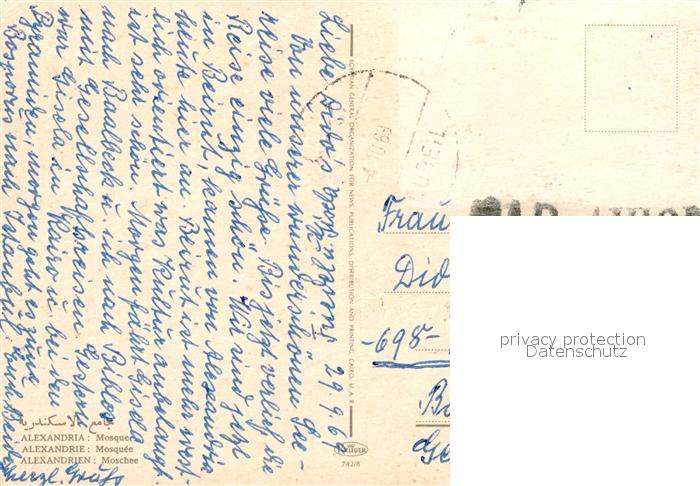 29.9.69
Liebe Dido's
Von unserer wunderschönen See-
reise viele Grüße. Bis jetzt verlief die
Reise einzig schön. Wir sind jetzt
in Beirut, kamen von Alexandria
heute hier an. Beirut ist mehr west-
lich orientiert was Kultur anbelangt.
ist sehr schön. Morgen fährt Gisela
mit Gesellschaftsreisen
nach Baalbeck u. ich nach Byblos
war Gisela in Kairo u. bei den
Pyramiden, morgen geht es zum
Bosporus nach Istanbul.
herzl. Grüße
EGYPTIAN GENERAL ORGANIZATION FOR NEWS, PUBLICATIONS, DISTRIBUTION AND PRINTING, CAIRO, U. A. R.
Frau
Did
-698-
privacy protection
Datenschutz
جامع الاسكندرية
ALEXANDRIA : Mosque
ALEXANDRIE : Mosquée
ALEXANDRIEN : Moschee
KRÜGER
742/8